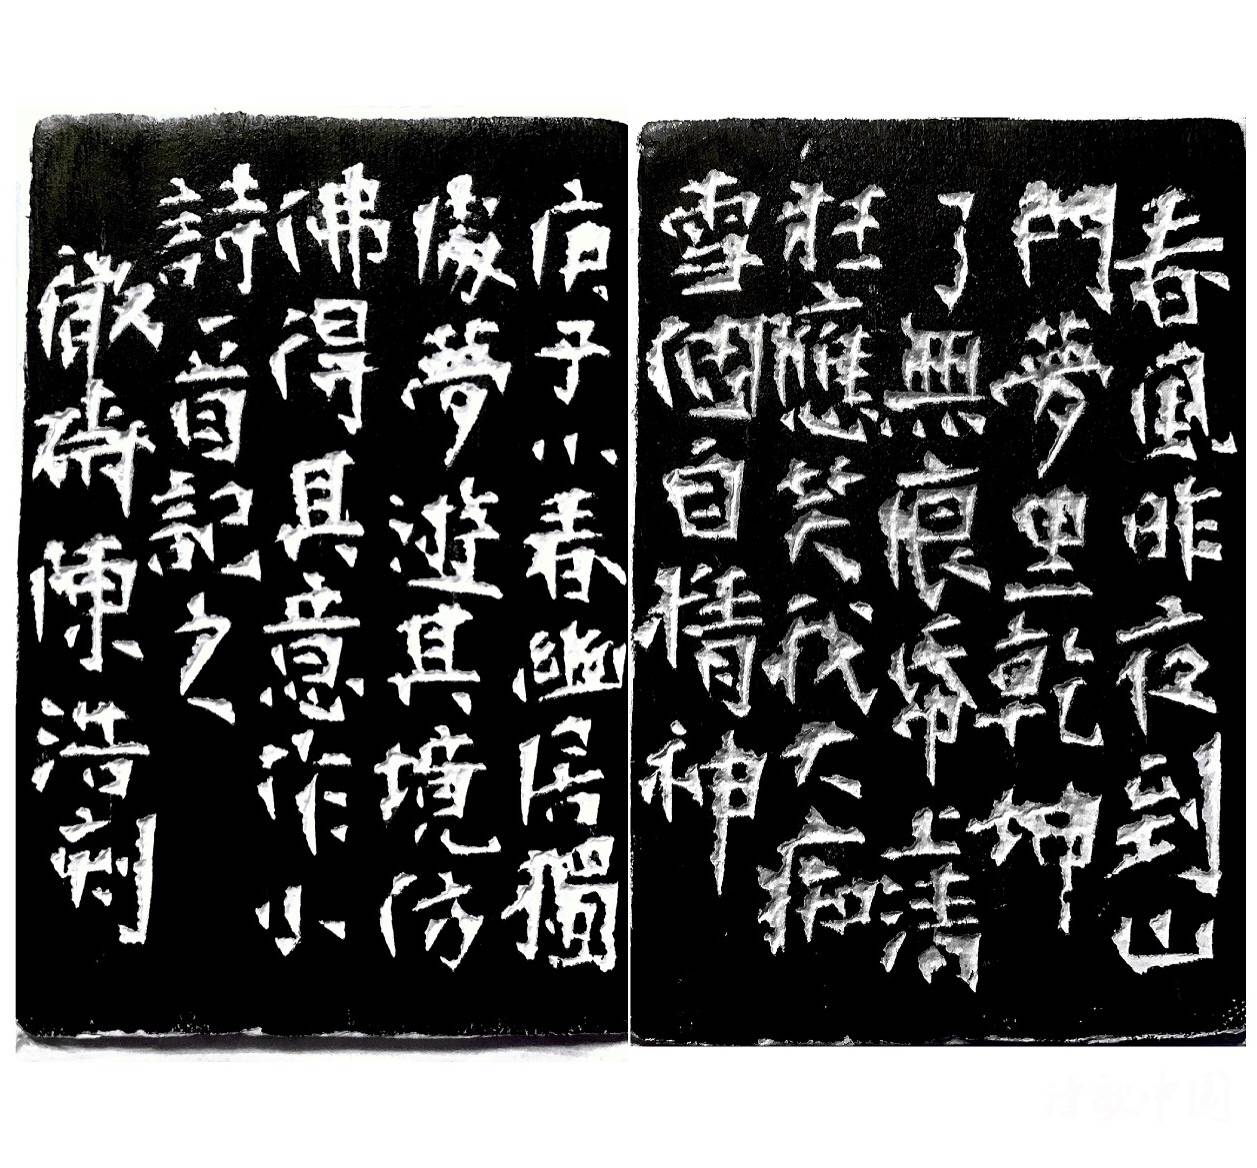 春風昨夜到山
門夢里乾坤
了無痕帋上清
狂應笑我大痴
雪個自精神
庚子小春幽居獨
處夢遊其境仿
佛得其意作小
詩一首記之
陳浩